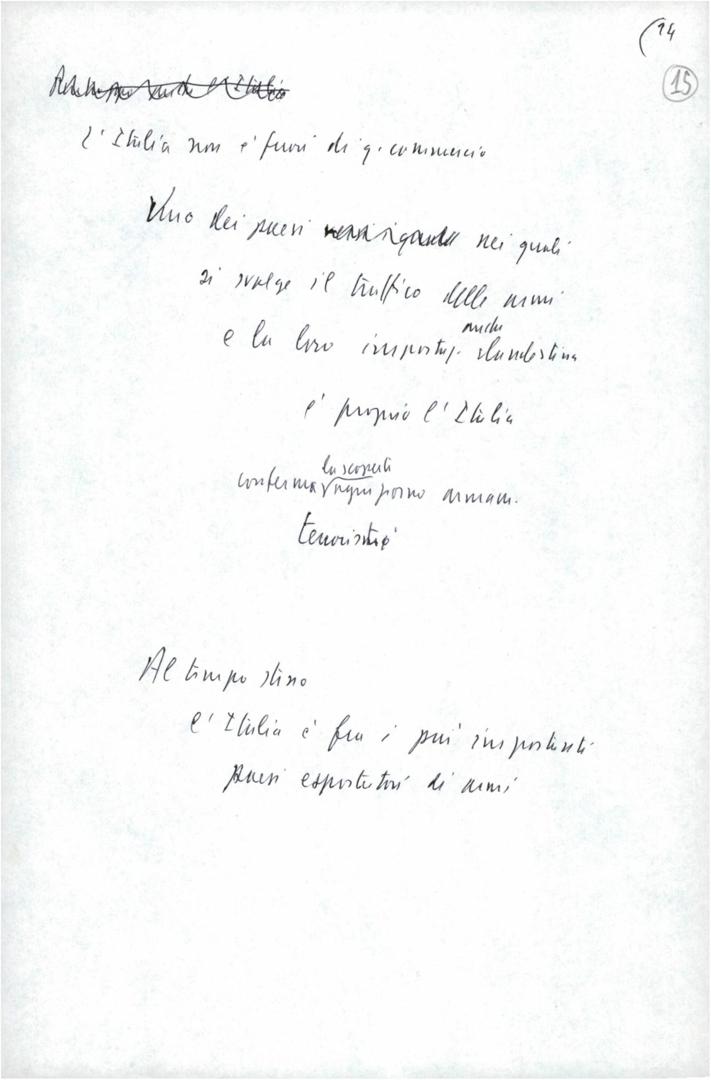 (14
15
l'Italia non è fuori di q. commercio
Uno dei paesi nei quali
si svolge il traffico delle armi
anche
e la loro importaz. clandestina
e' proprio l'Italia
la scoperta
conferma ogni giorno armam.
terroristici
Al tempo stesso
l'Italia è fra i più importanti
paesi esportatori di armi